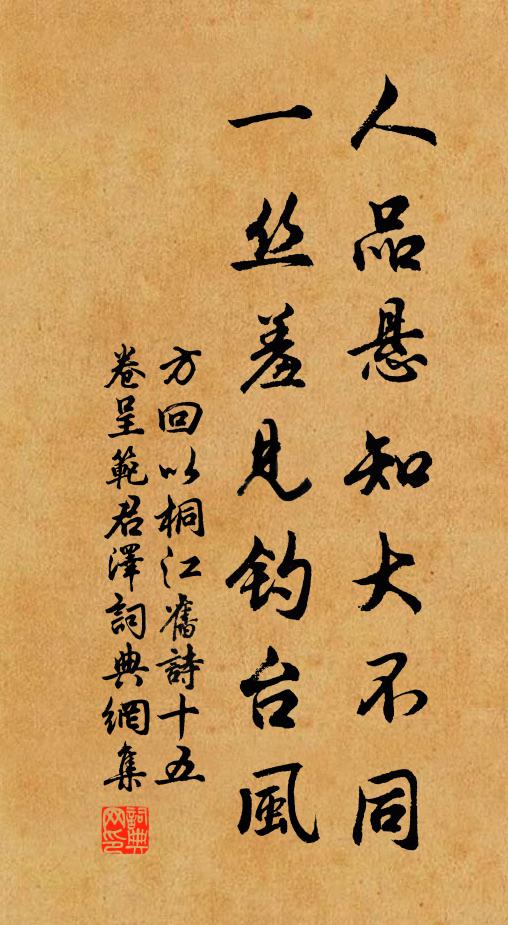 人品悬知大不同
一丝羞见钓台風
方回以桐江舊詩十五
卷呈範君澤詞典網集
詞典网印